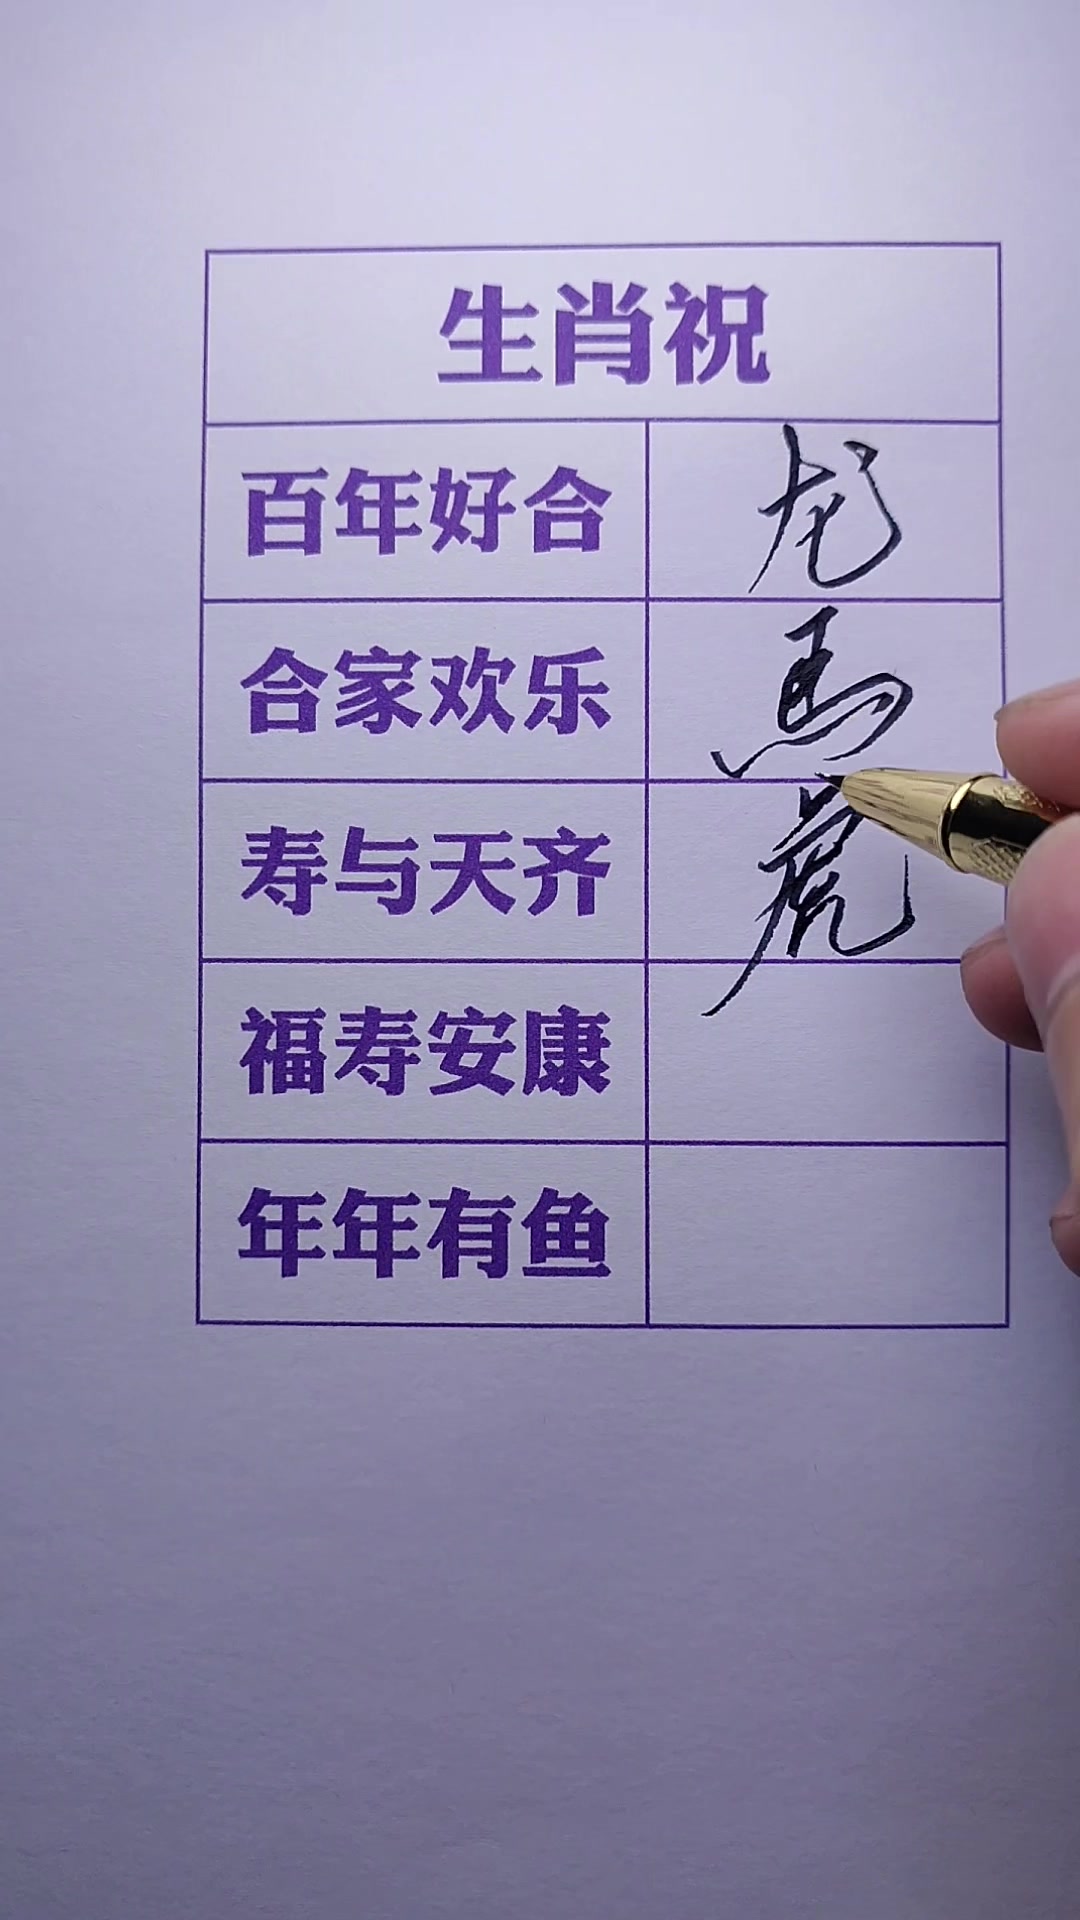 生肖祝
百年好合 龙
合家欢乐 马
寿与天齐 虎
福寿安康
年年有鱼